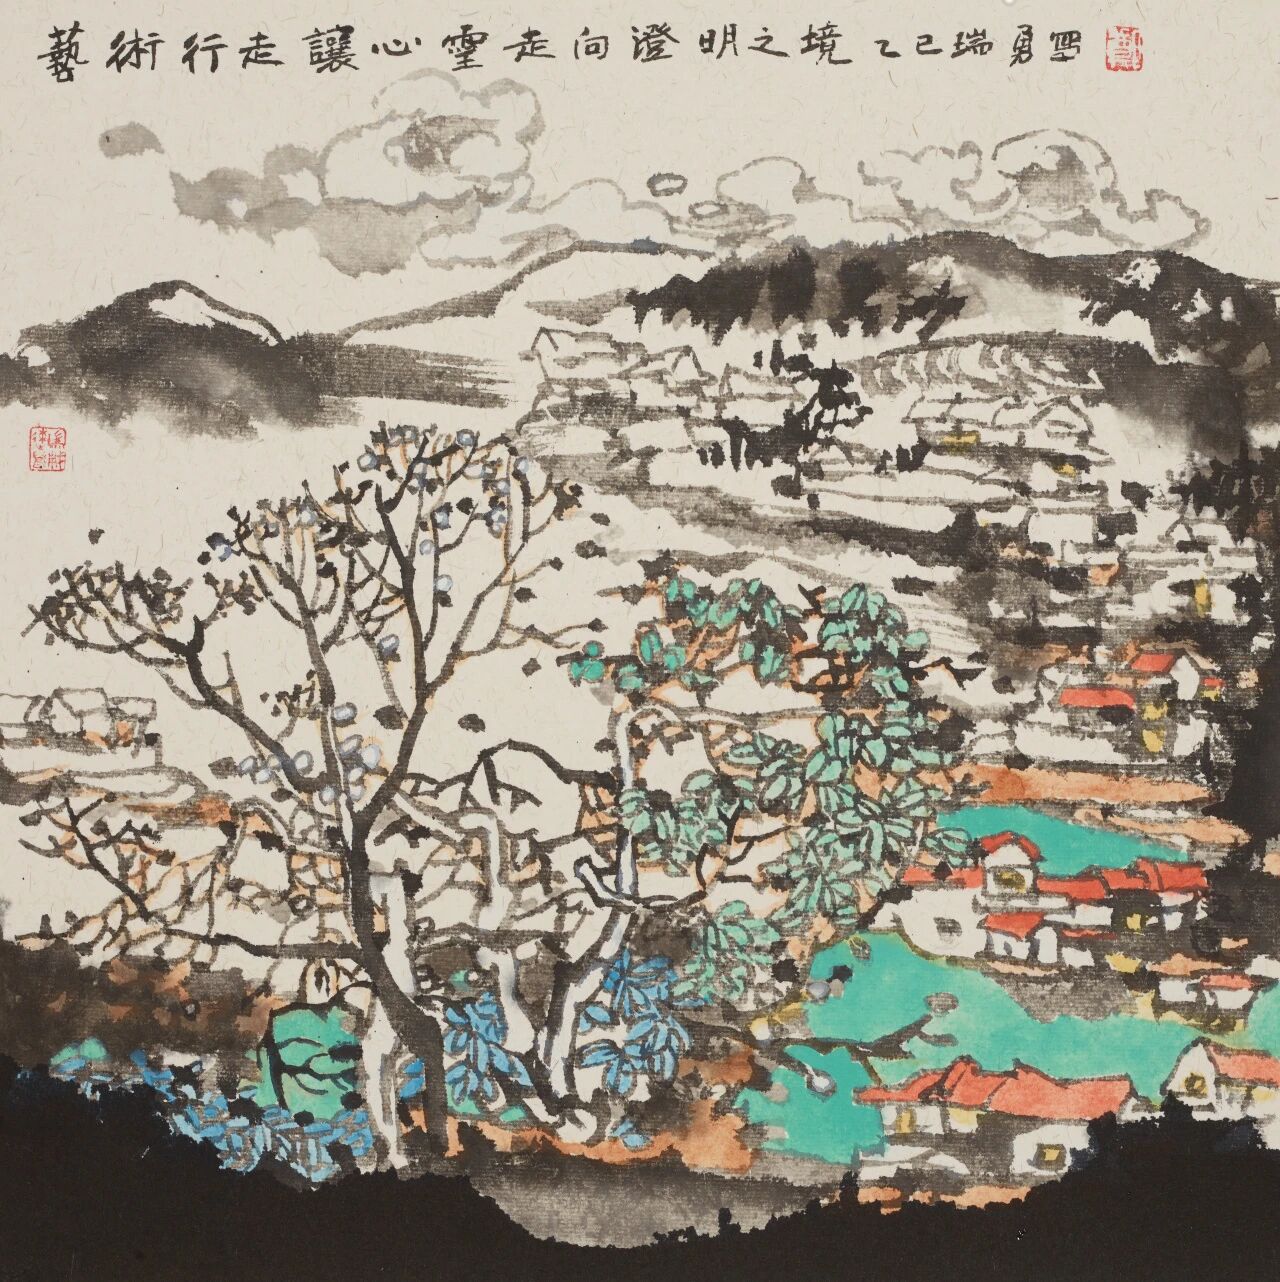 藝術行走讓心靈走向澄明之境 乙巳瑞勇寫